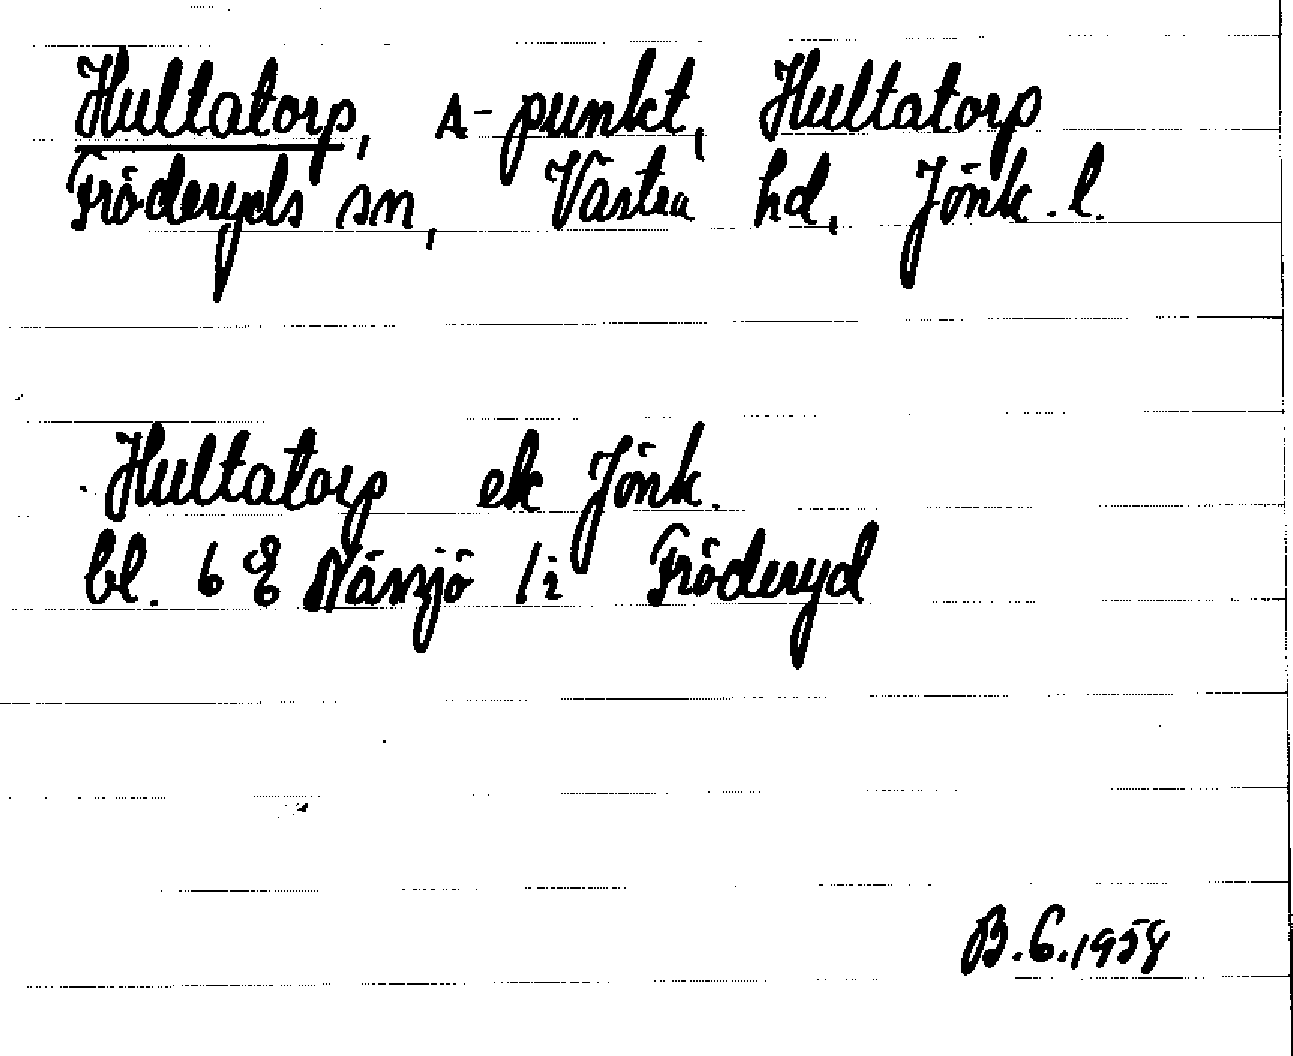 Hultatorp, A-punkt, Hultatorp
Fröderyds sn, Västra hd, Jönk. l.
Hultatorp ek Jönk.
bl. 6 E Nässjö 1i Fröderyd
B.G.1958